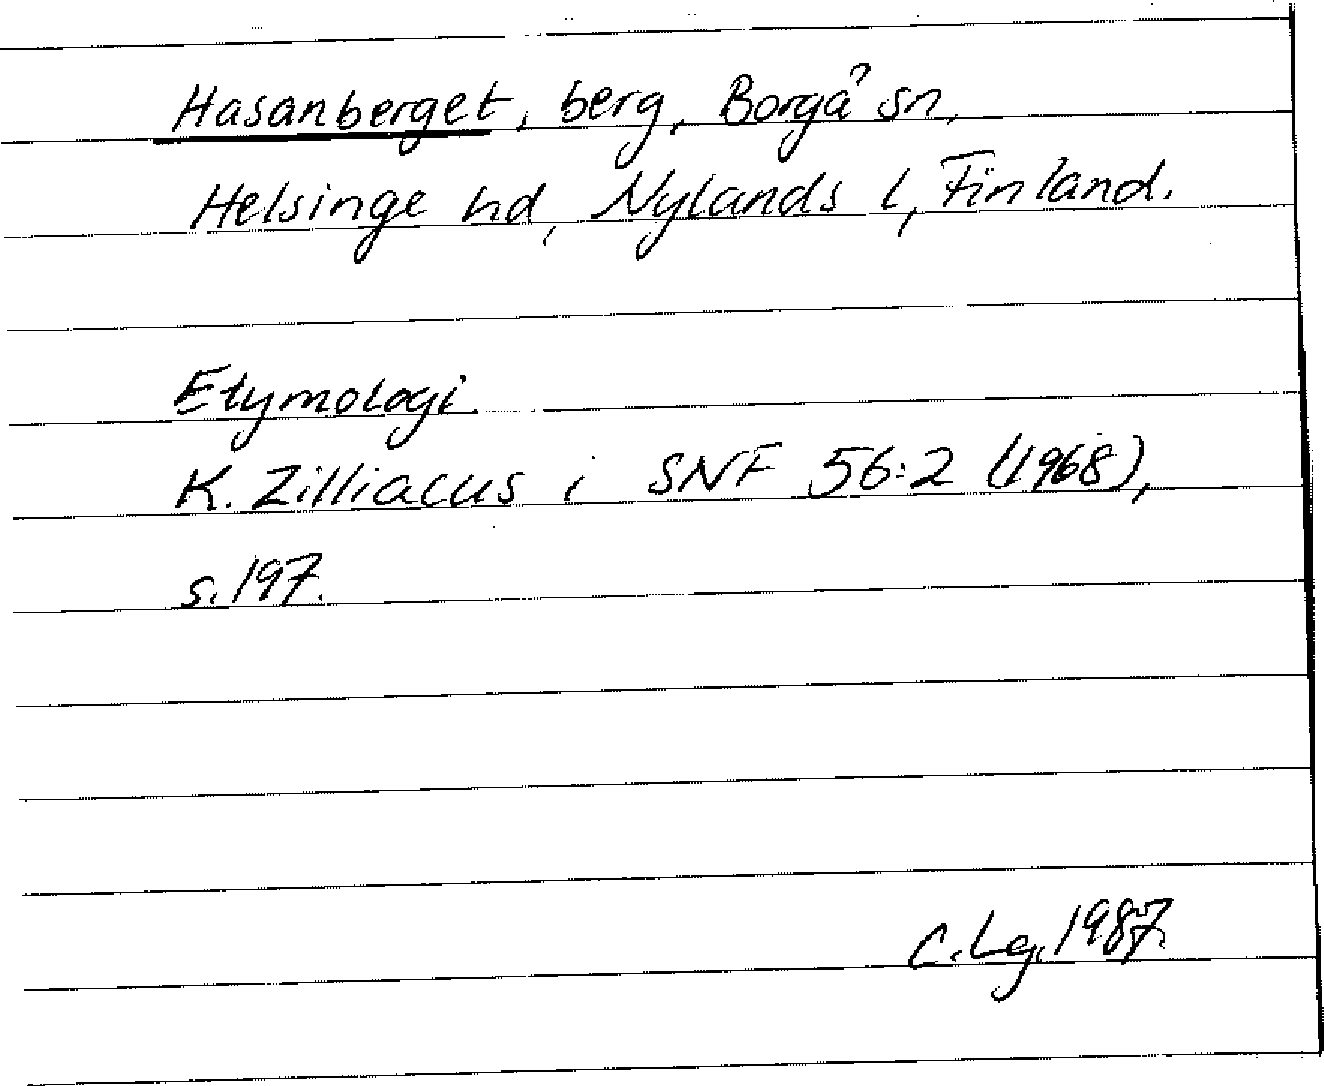 Hasanberget, berg, Borgå sn,
Helsinge hd, Nylands l, Finland.
Etymologi.
K. Zilliacus i SNF 56:2 (1968),
s. 197.
C. Lg. 1987.